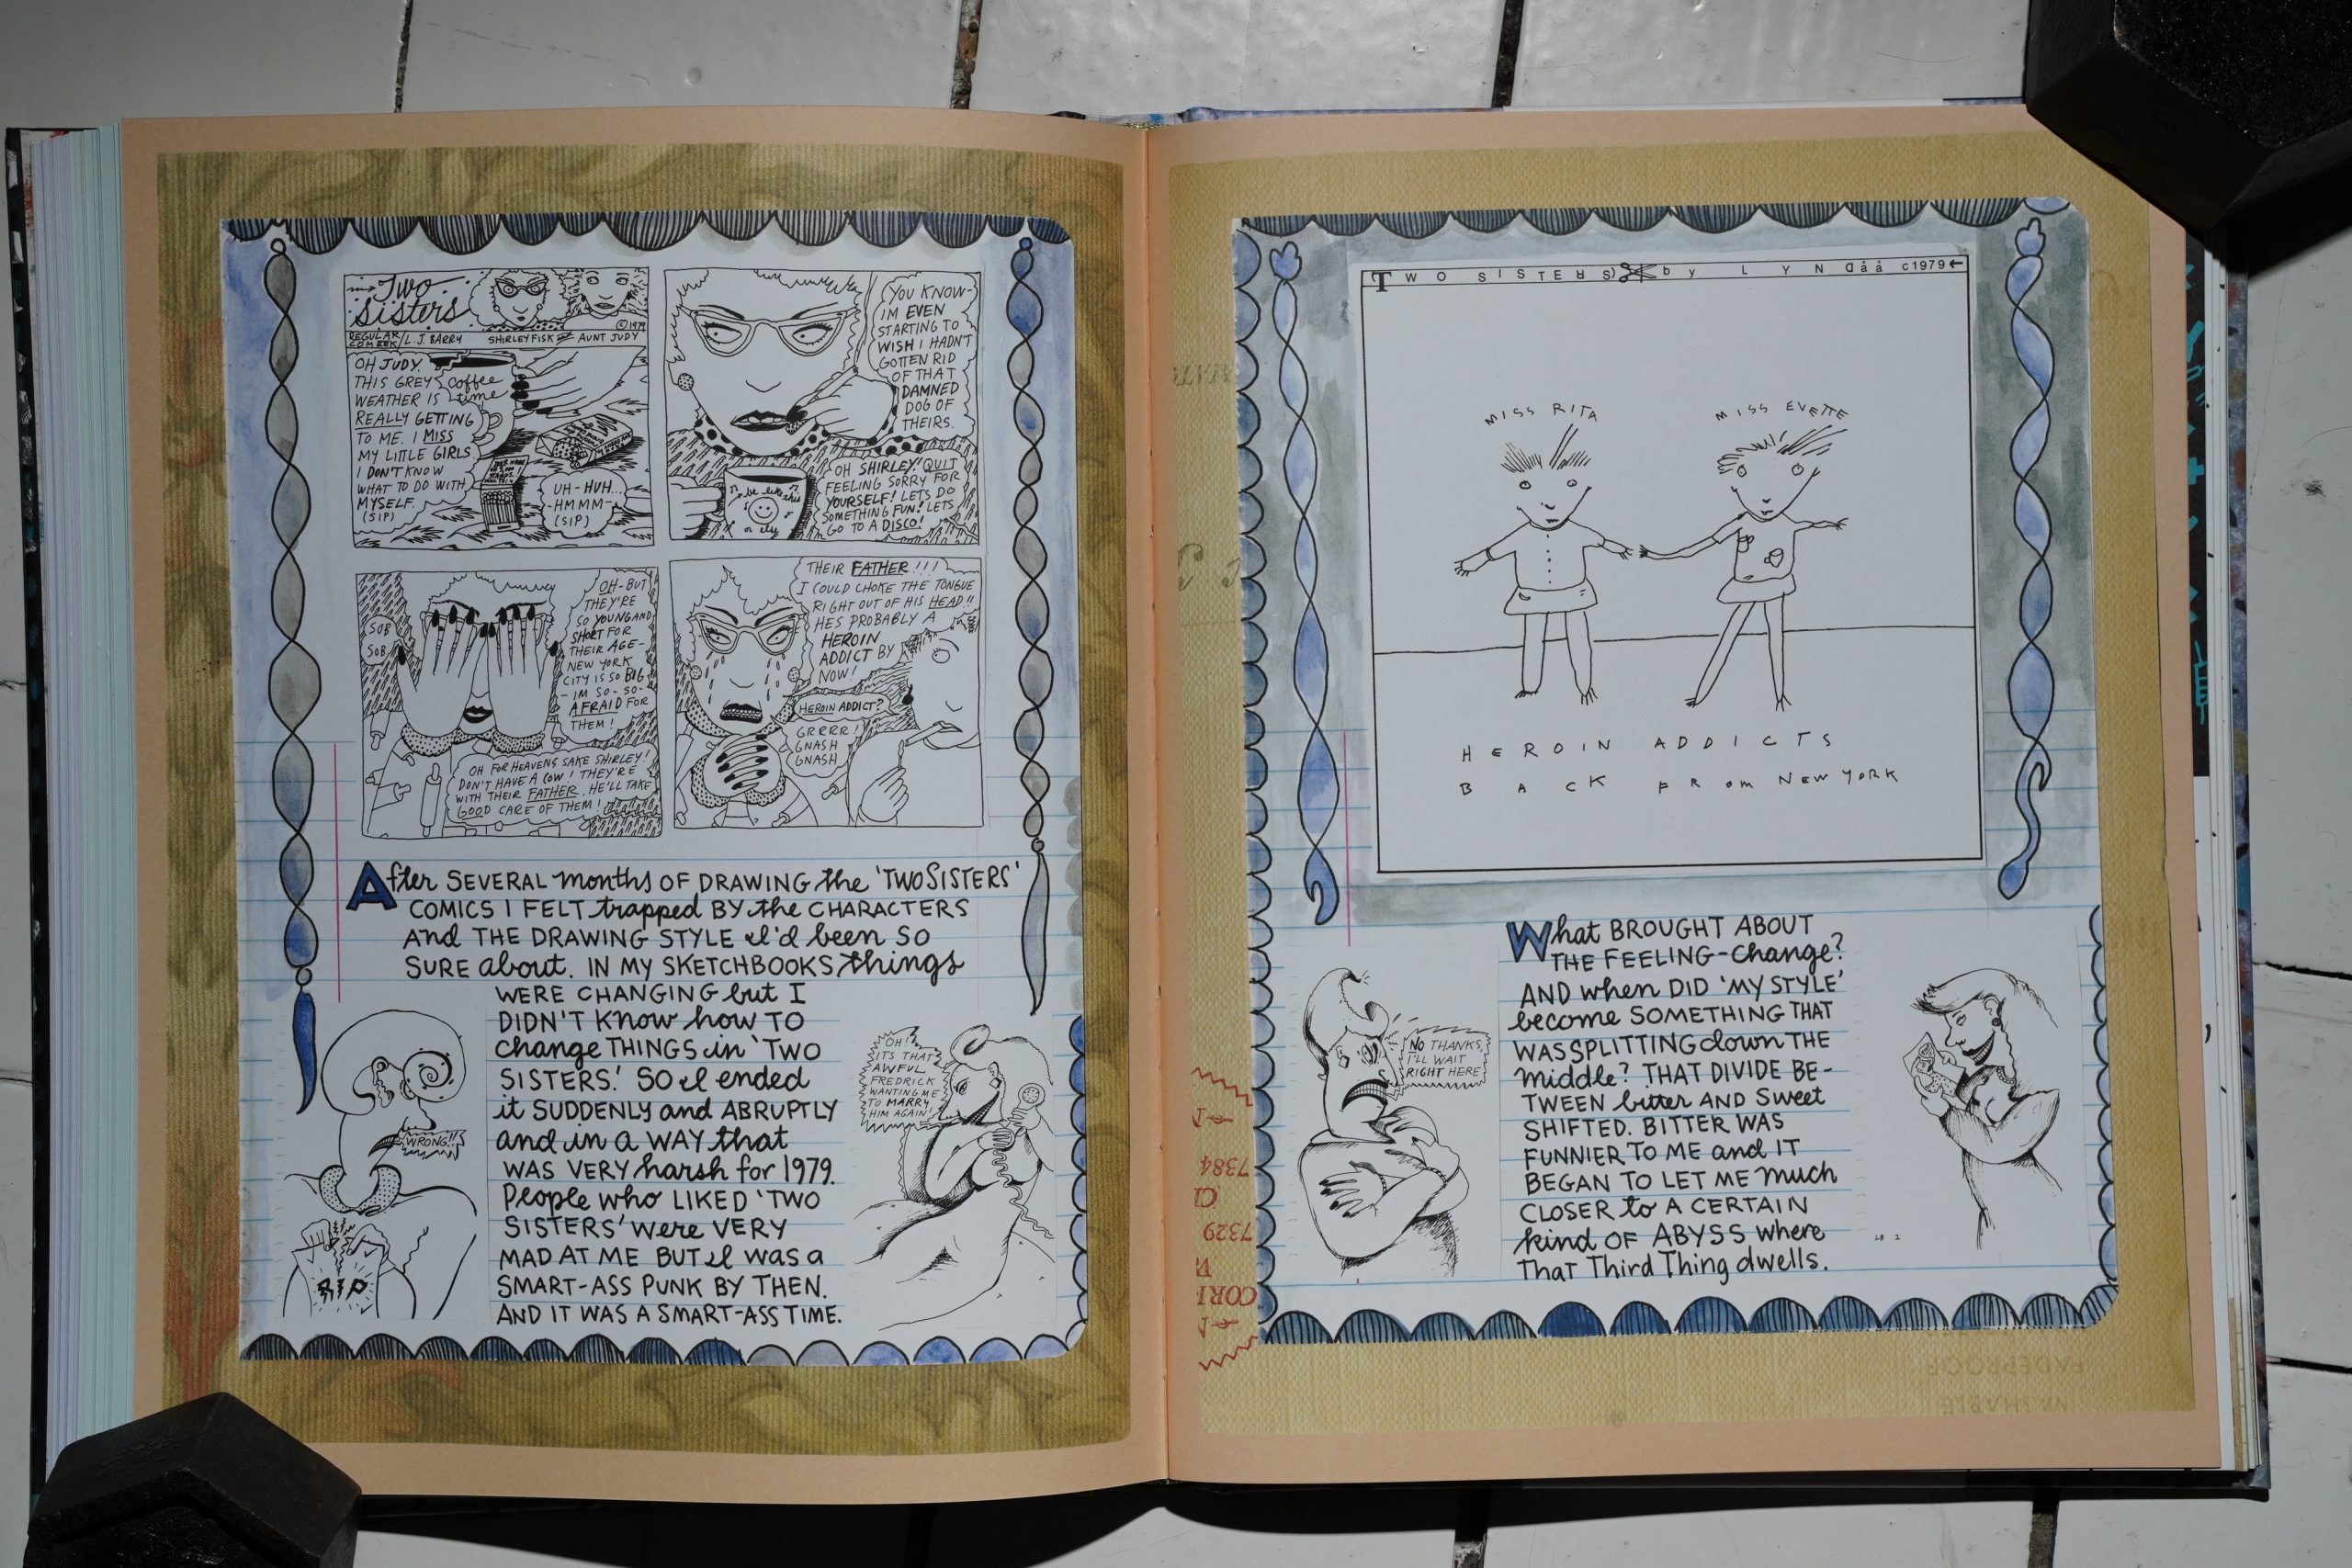 Two
Sisters
© 1979
REGULAR
COMEEK / L.J. BARRY SHIRLEY FISK AUNT JUDY
OH JUDY.
THIS GREY
WEATHER IS
REALLY GETTING
TO ME. I MISS
MY LITTLE GIRLS
I DON'T KNOW
WHAT TO DO WITH
MYSELF.
(SIP)
coffee
time
UH-HUH...
-HMMM-
(SIP)
YOU KNOW-
IM EVEN
STARTING TO
WISH I HADN'T
GOTTEN RID
OF THAT
DAMNED
DOG OF
THEIRS.
be like this
or else
OH SHIRLEY! QUIT
FEELING SORRY FOR
YOURSELF! LETS DO
SOMETHING FUN! LETS
GO TO A DISCO!
SOB
SOB
OH-BUT
THEY'RE
SO YOUNG AND
SHORT FOR
THEIR AGE-
NEW YORK
CITY IS SO BIG
- IM SO-SO-
AFRAID FOR
THEM!
OH FOR HEAVENS SAKE SHIRLEY!
DON'T HAVE A COW! THEY'RE
WITH THEIR FATHER. HE'LL TAKE
GOOD CARE OF THEM!
THEIR FATHER!!!
I COULD CHOKE THE TONGUE
RIGHT OUT OF HIS HEAD!!
HES PROBABLY A
HEROIN
ADDICT BY
NOW!
HEROIN ADDICT?
GRRRR!
GNASH
GNASH
After SEVERAL months OF DRAWING the 'TWO SISTERS'
COMICS I FELT trapped BY the CHARACTERS
And THE DRAWING STYLE I'd been SO
SURE about. IN MY SKETCHBOOKS things
WERE CHANGING but I
DIDN'T Know how TO
Change THINGS in 'TWO
SISTERS.' SO I ended
it SUDDENLY and ABRUPTLY
and in a WAY that
WAS VERY harsh for 1979.
People who LIKED 'TWO
SISTERS' were VERY
MAD AT ME BUT I was a
SMART-ASS PUNK BY THEN.
AND IT WAS A SMART-ASS TIME.
WRONG!!
RIP
OH!
ITS THAT
AWFUL
FREDRICK
WANTING ME
TO MARRY
HIM AGAIN!
TWO SISTERS by LYNDåå c1979
MISS RITA
MISS EVETTE
HEROIN ADDICTS
BACK FROM NEW YORK
What BROUGHT ABOUT
THE FEELING-Change?
AND when DID 'MY STYLE'
become SOMETHING THAT
WAS SPLITTING down THE
middle? THAT DIVIDE BE-
TWEEN bitter AND Sweet
SHIFTED. BITTER WAS
FUNNIER TO ME and IT
BEGAN TO LET ME much
CLOSER to A CERTAIN
kind OF ABYSS where
THAT Third Thing dwells.
NO THANKS,
I'LL WAIT
RIGHT HERE
7384
7329
CORI
FADEPROOF
WASHABLE